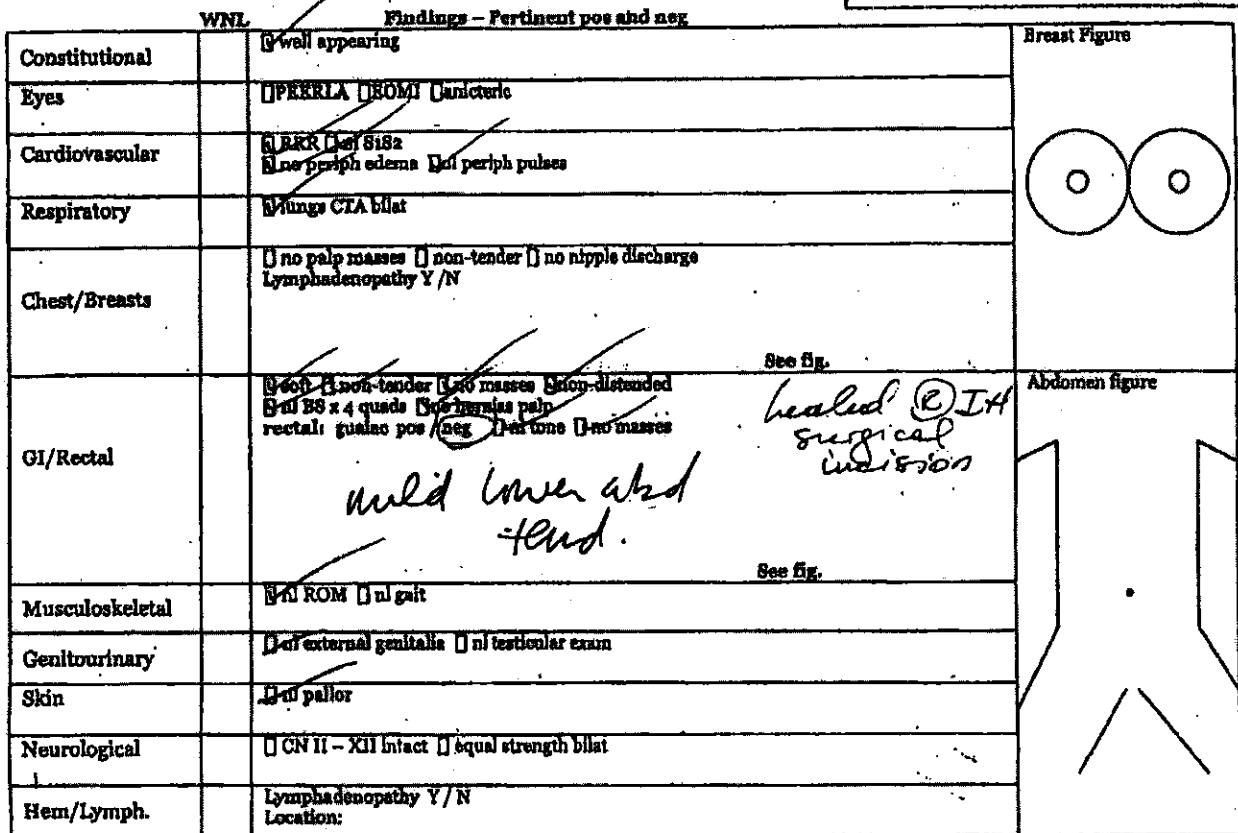 WNL Findings – Pertinent pos and neg
Constitutional
well appearing
Breast Figure
Eyes
PEERLA EOMI anicteric
Cardiovascular
RRR nl S1S2
no periph edema nl periph pulses
Respiratory
lungs CTA bilat
Chest/Breasts
no palp masses non-tender no nipple discharge
Lymphadenopathy Y/N
See fig.
GI/Rectal
soft non-tender no masses non-distended
nl BS x 4 quads no hernias palp
rectal: guaiac pos / neg nl tone no masses
healed R IH
surgical
incision
mild lower abd
tend.
See fig.
Abdomen figure
Musculoskeletal
nl ROM nl gait
Genitourinary
nl external genitalia nl testicular exam
Skin
nl pallor
Neurological
CN II – XII intact equal strength bilat
Hem/Lymph.
Lymphadenopathy Y / N
Location: